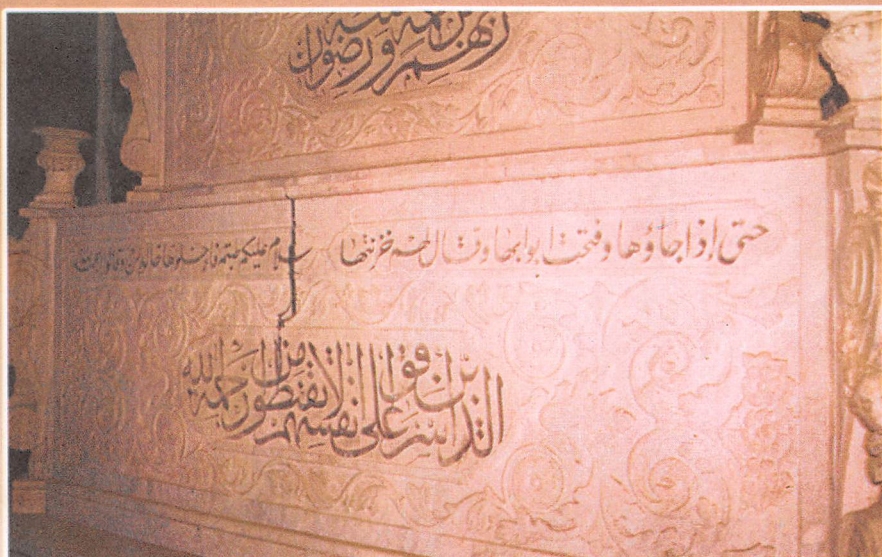 ربهم برحمة منه ورضوان
حتى إذا جاؤها وفتحت ابوابها وقال لهم خزنتها سلام عليكم طبتم فادخلوها خالدين وقالوا
الذين اسرفوا على انفسهم لا تقنطوا من رحمة الله